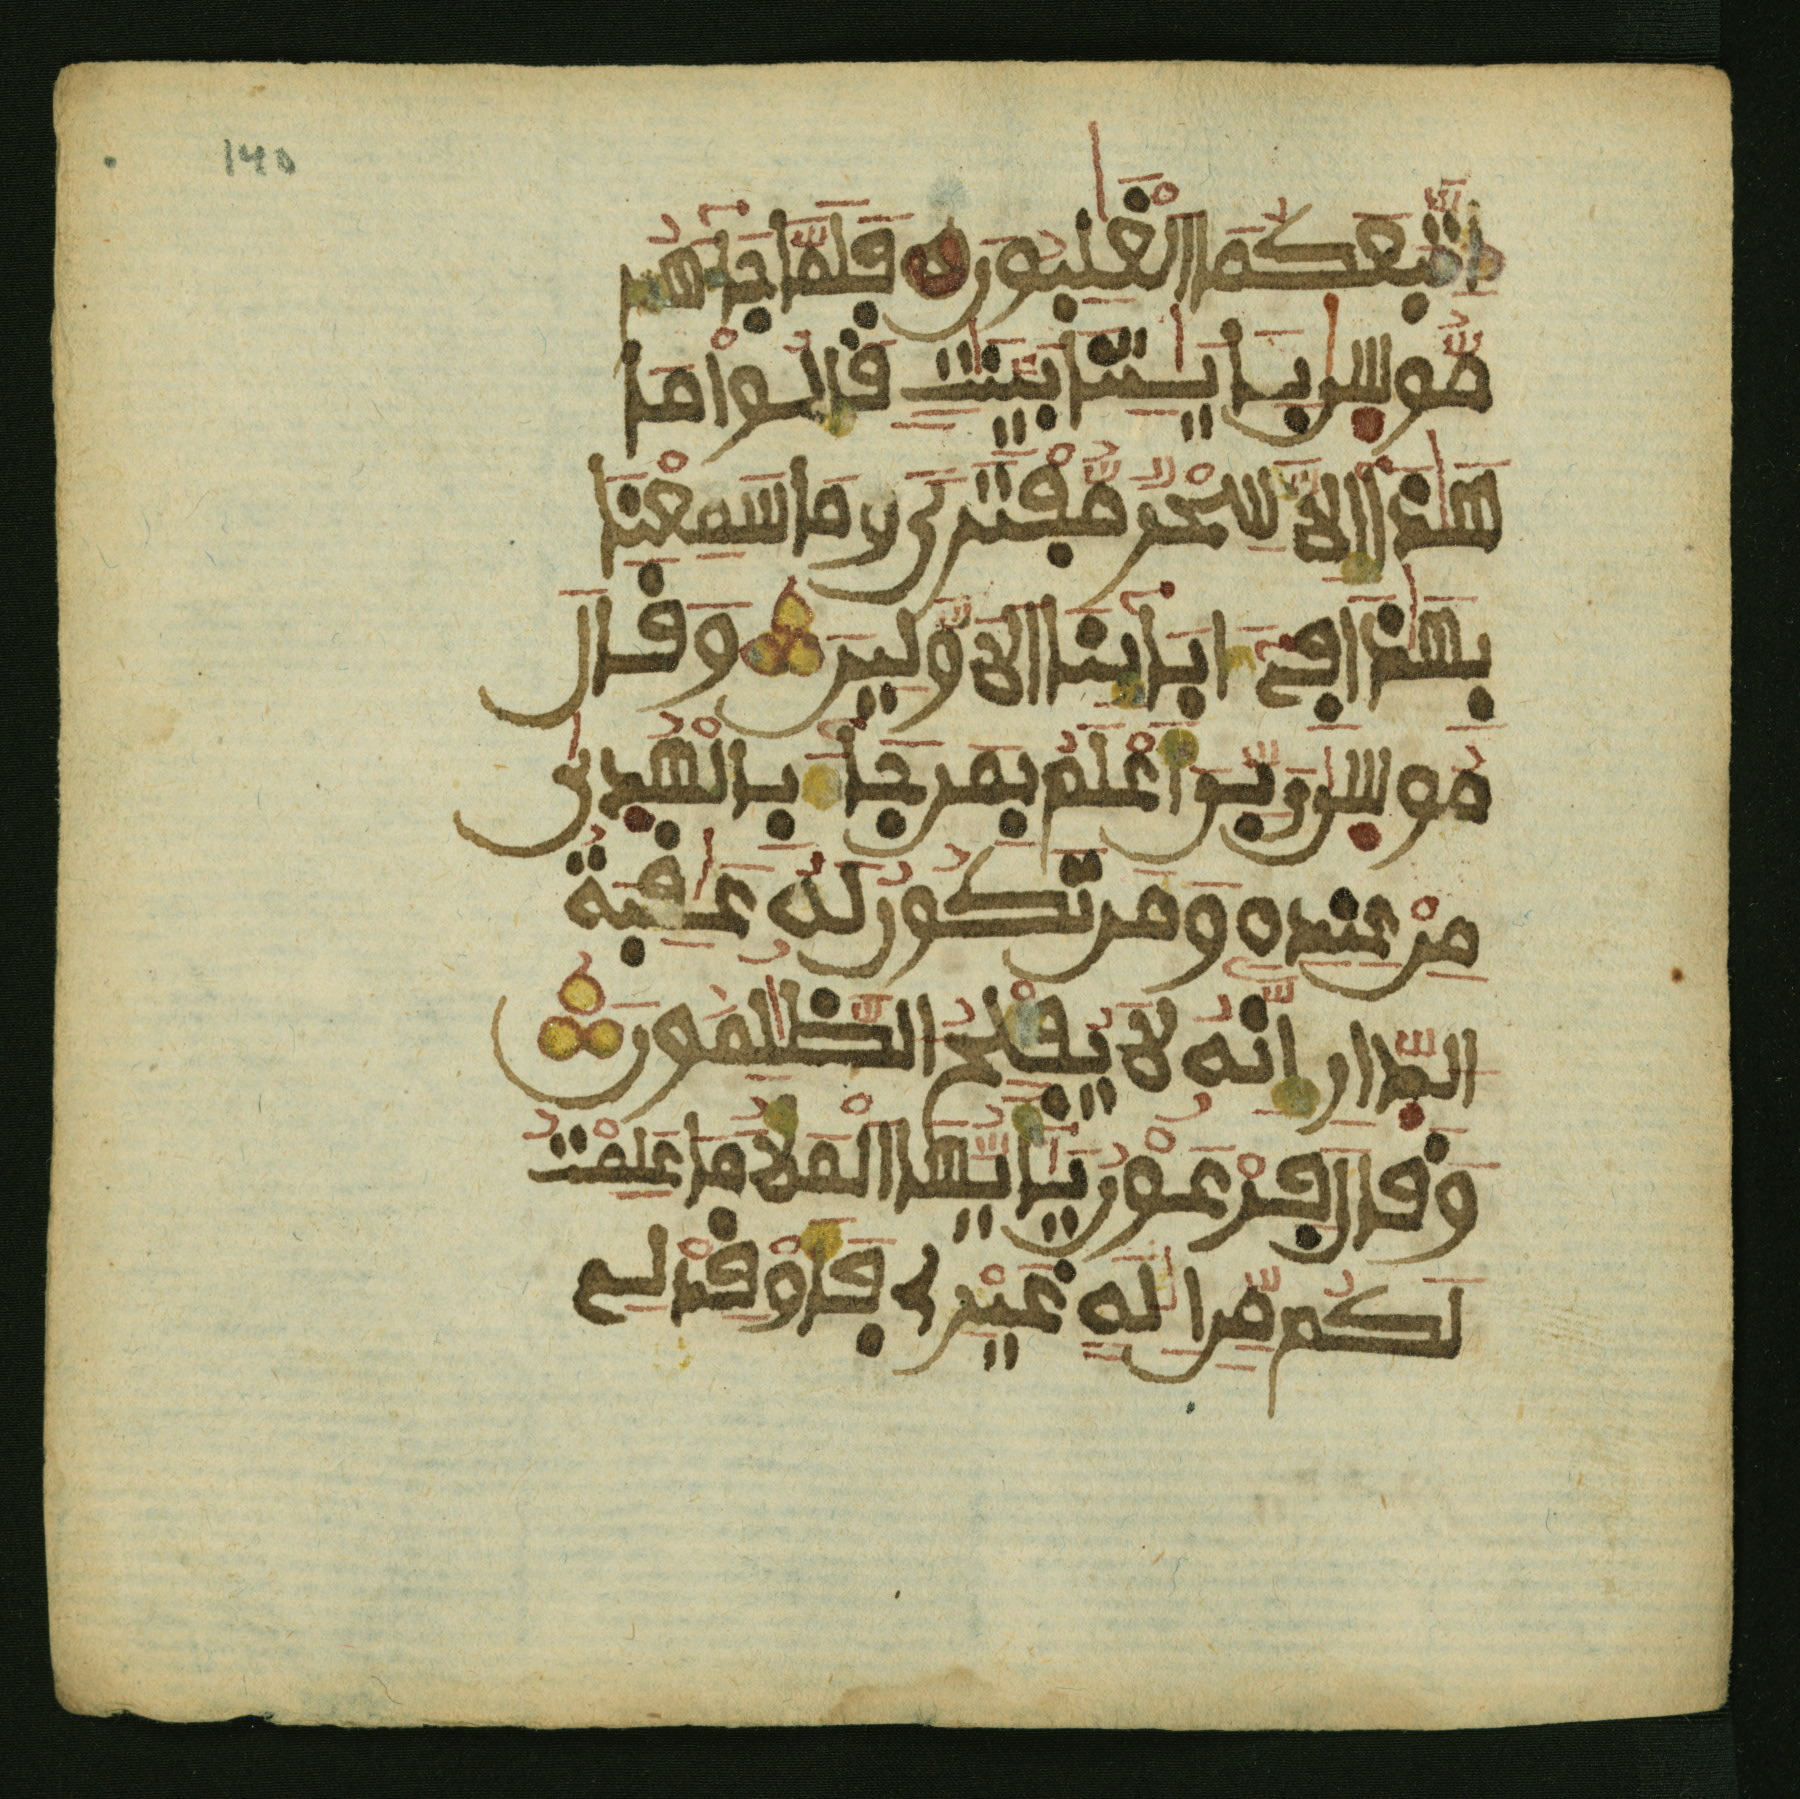 140
اتَّبَعَكُمَا الْغَٰلِبُونَ فَلَمَّا جَآءَهُم
مُّوسَىٰ بِـَٔايَٰتِنَا بَيِّنَٰتٍ قَالُوا۟ مَا
هَٰذَآ إِلَّا سِحْرٌ مُّفْتَرًى وَمَا سَمِعْنَا
بِهَٰذَا فِىٓ ءَابَآئِنَا الَاوَّلِينَ وَقَالَ
مُوسَىٰ رَبِّىَ أَعْلَمُ بِمَن جَآءَ بِالْهُدَىٰ
مِنْ عِندِهِ وَمَن تَكُونُ لَهُ عَٰقِبَةُ
الدِّارِ إِنَّهُ لَا يُفْلِحُ الظَّٰلِمُونَ
وَقَالَ فِرْعَوْنُ يَٰٓأَيُّهَا الْمَلَأُ مَا عَلِمْتُ
لَكُم مِّنِ الَٰهٍ غَيْرِى فَأَوْقِدْ لِى